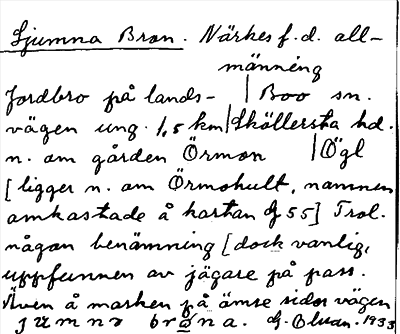 Ljumna Bron. Närkes f. d. all-
männing
Jordbro på lands- | Boo sn.
vägen ung. 1,5 km | Sköllersta hd.
n. om gården Örmon | Ögl
[ligger n. om Örmohult, namnen
omkastade å kartan Bg 55] Trol.
någon benämning [dock vanlig,
uppfunnen av jägare på pass.
Även å marken på ömse sidor vägen
jumna brona. G. Olsson. 1933